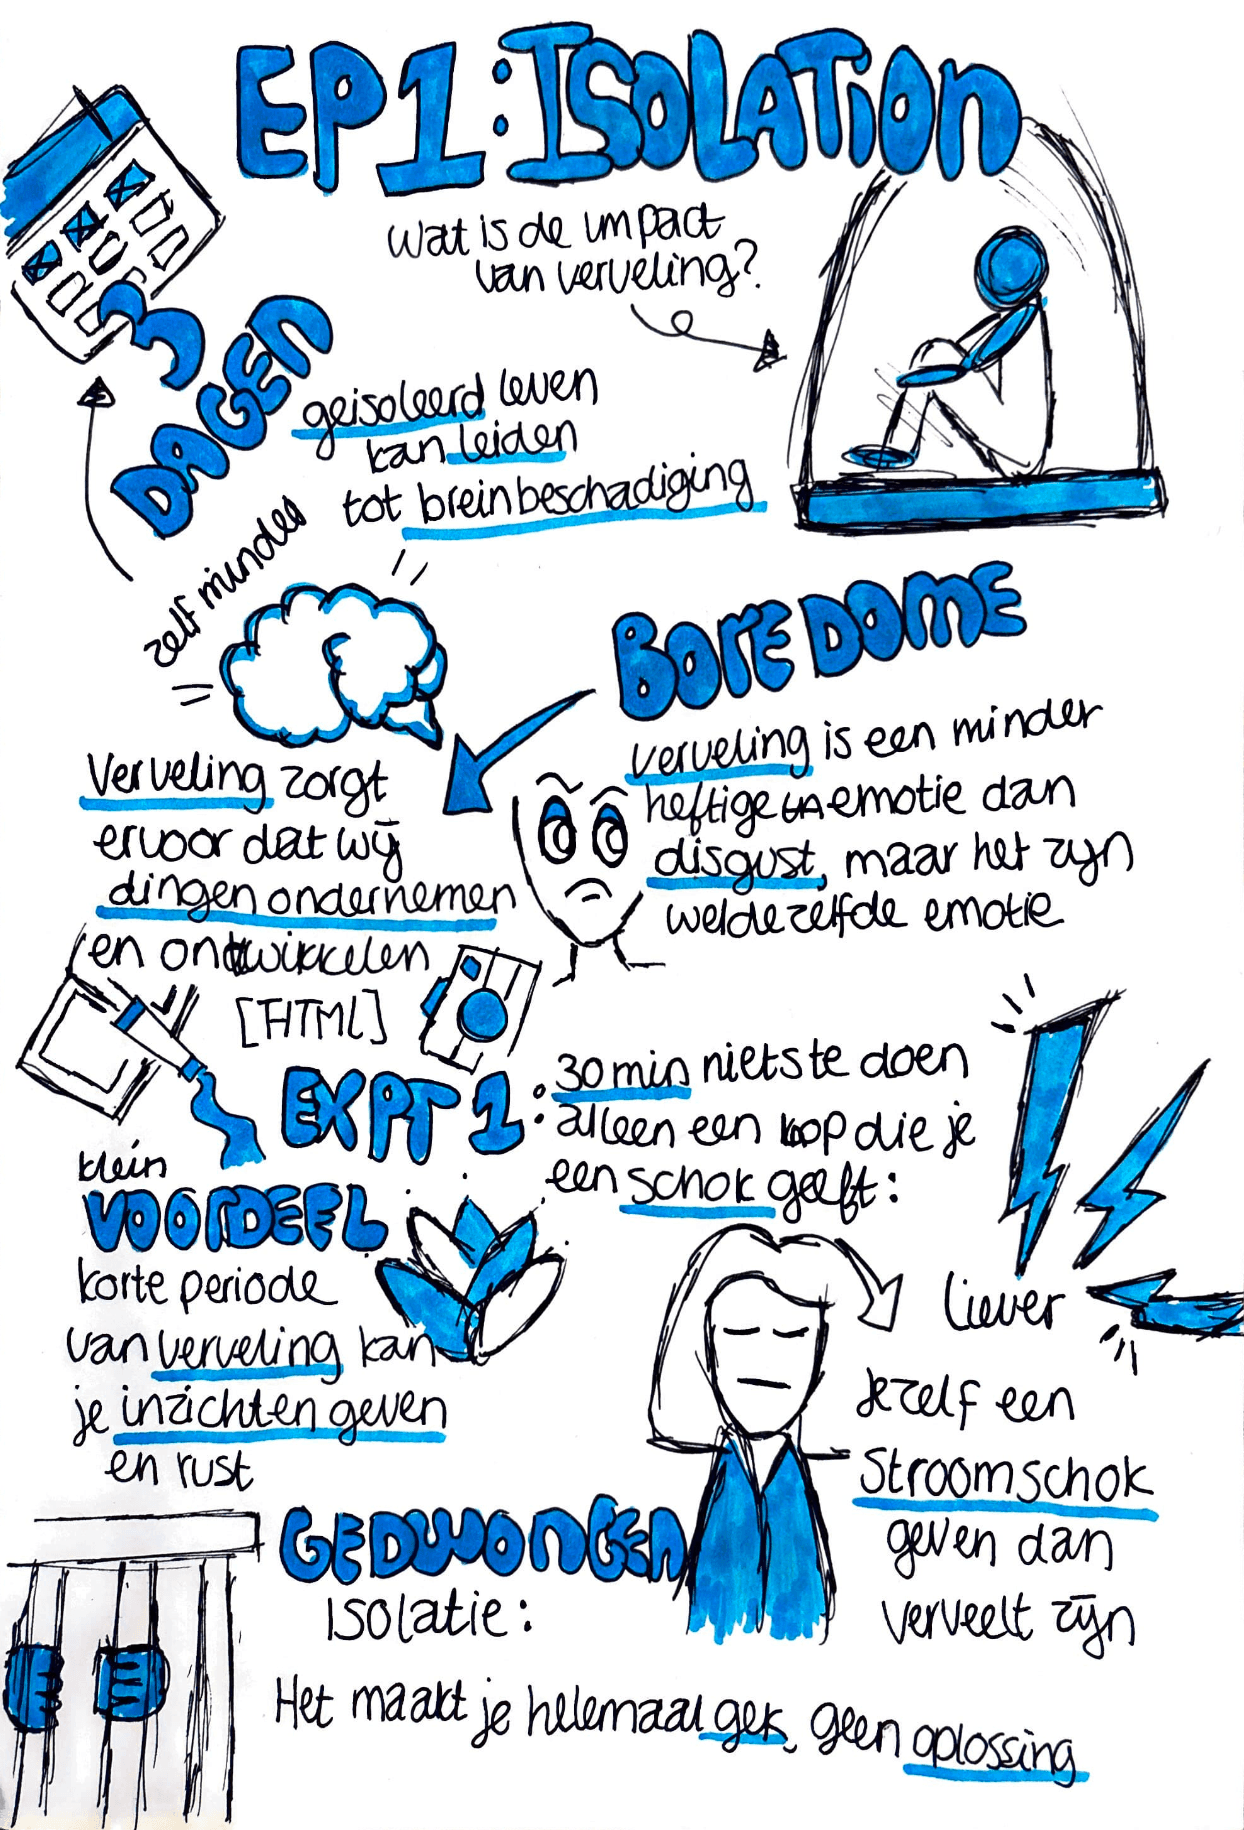 EP1: ISOLATION
Wat is de impact
van verveling?
3
DAGEN
geisoleerd leven
kan leiden
tot breinbeschadiging
zelf minder
BOREDOME
verveling is een minder
heftige emotie dan
disgust, maar het zijn
wel dezelfde emotie
Verveling zorgt
ervoor dat wij
dingen ondernemen
en ontwikkelen
[THTML]
EXPT 1:
30 min niets te doen
alleen een knop die je
een schok geeft:
klein
VOORDEEL
korte periode
van verveling kan
je inzichten geven
en rust
liever
Jezelf een
Stroomschok
geven dan
verveelt zijn
GEDWONGEN
ISOLATIE:
Het maakt je helemaal gek, geen oplossing